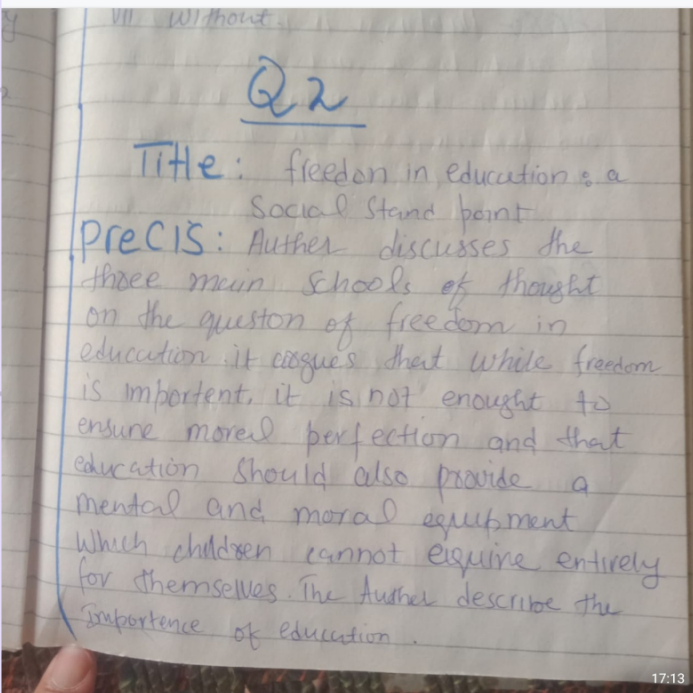 VII Without.
Q2
Title: freedon in education : a
Social Stand point
Precis: Auther discusses the
three main schools of thought
on the queston of freedom in
education. it arogues that while freedom
is importent, it is not enought to
ensure moral perfection and that
education should also provide a
mental and moral equipment
Which children cannot equire entirely
for themselves. The Auther describe the
Importence of education.
17:13